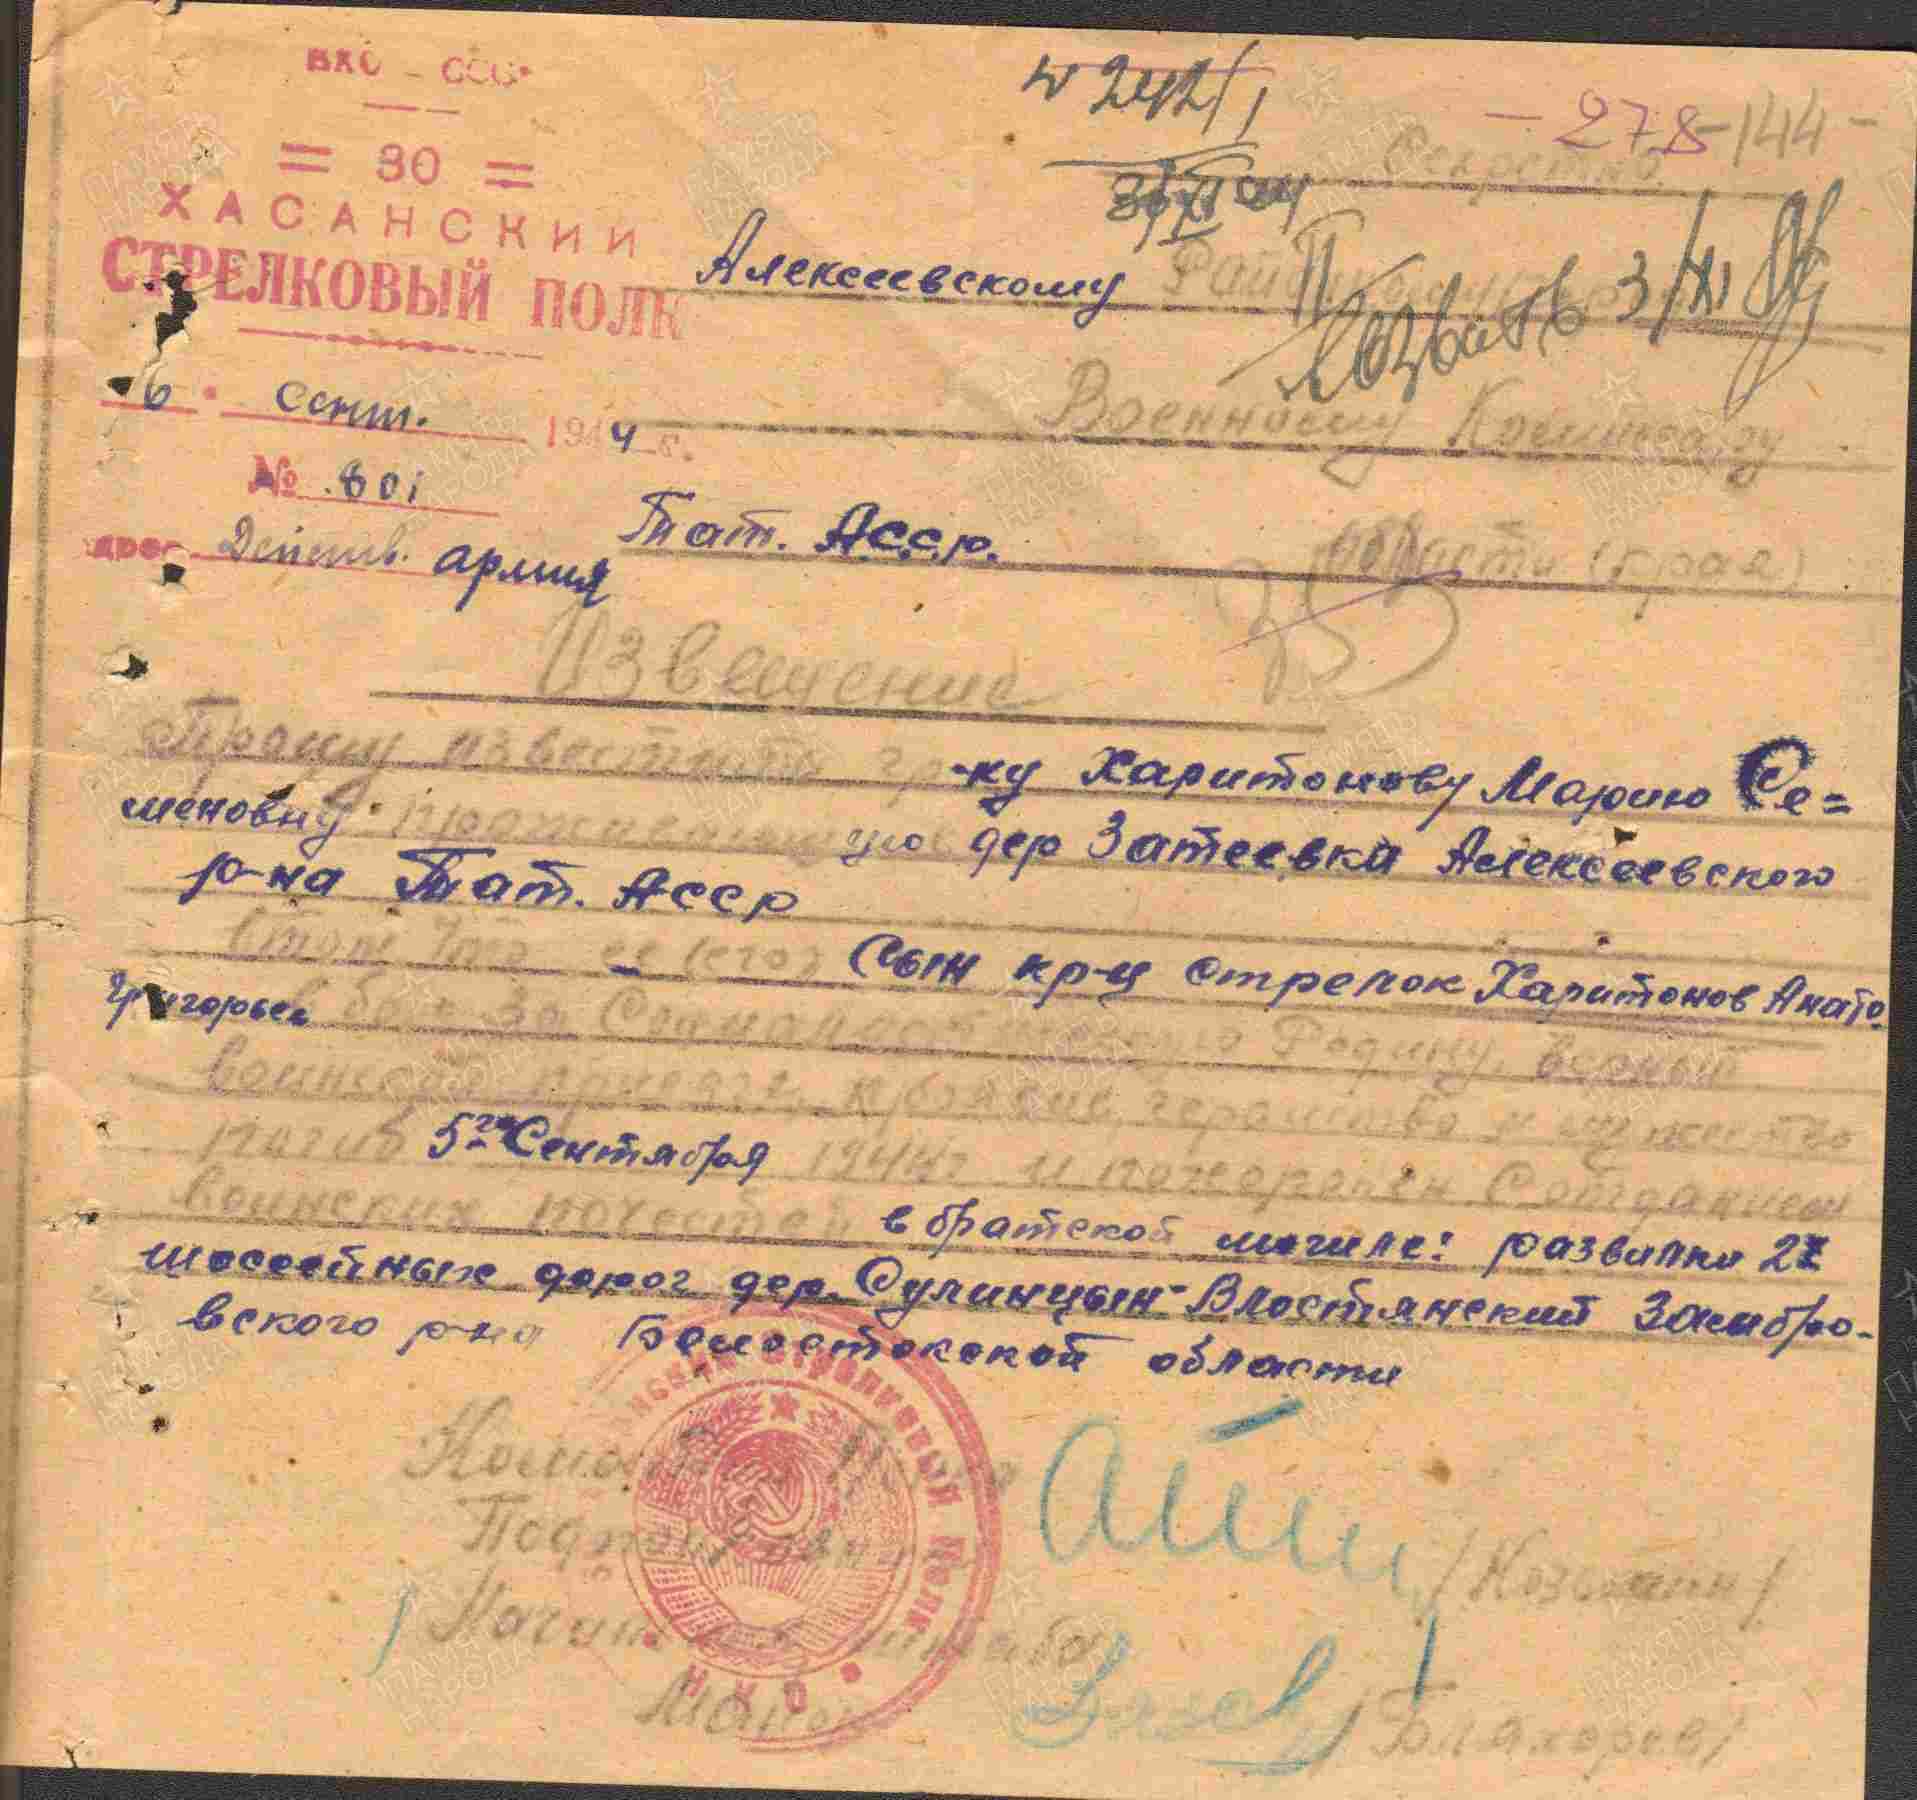 НКО - СССР
= 30 =
ХАСАНСКИЙ
СТРЕЛКОВЫЙ ПОЛК
6 сент. 1944 г.
№ 801
адрес Действ. армия
№ 242/1
- 278 - 144 -
Секретно
Алексеевскому Рай
3/XI
Военному Комиссару
Тат. АССР. области (края)
Извещение
Прошу известить гр-ку Харитонову Марию Се=
меновну проживающую дер Затеевка Алексеевского
р-на Тат. АССР
в том что ее (его) Сын кр-ц стрелок Харитонов Анато.
Григорьев в бою за Социалистическую Родину, верный
воинской присяге, проявив геройство и мужество
погиб 5го Сентября 1944г и похоронен с отданием
воинских почестей в братской могиле: развилки 2х
шоссейных дорог дер. Сулинцын-Влостянский Замбро-
вского р-на Белостокской области
Командир Полка
Подполковник /Козомин/
Начальник штаба
Майор /Бляхоров/
стрелковый полк
НКО
ПАМЯТЬ НАРОДА